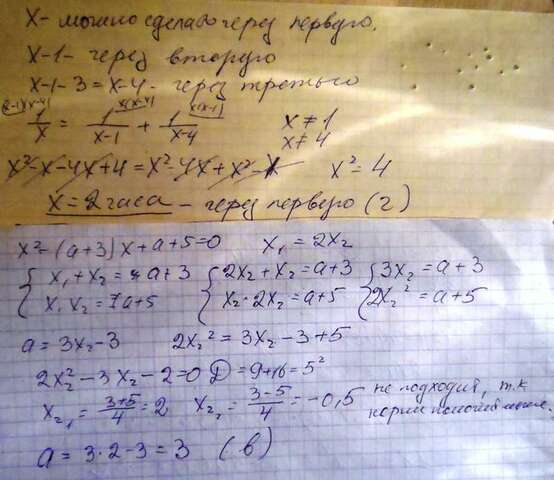 X - можно сделать через первую.
X-1 - через вторую
X-1-3 = X-4 - через третью
(x-1)(x-4) x(x-4) x(x-1)
1/x = 1/(x-1) + 1/(x-4) x≠1
x≠4
x²-x-4x+4 = x²-4x+x²-x x²=4
X=2 часа - через первую (2)
x²-(a+3)x+a+5=0 x₁=2x₂
{x₁+x₂=a+3 {2x₂+x₂=a+3 {3x₂=a+3
x₁x₂=a+5 x₂·2x₂=a+5 2x₂²=a+5
a=3x₂-3 2x₂²=3x₂-3+5
2x₂²-3x₂-2=0 D=9+16=5²
x₂₁=(3+5)/4=2 x₂₂=(3-5)/4=-0,5 не подходит, т.к
корни
a=3·2-3=3 (в)